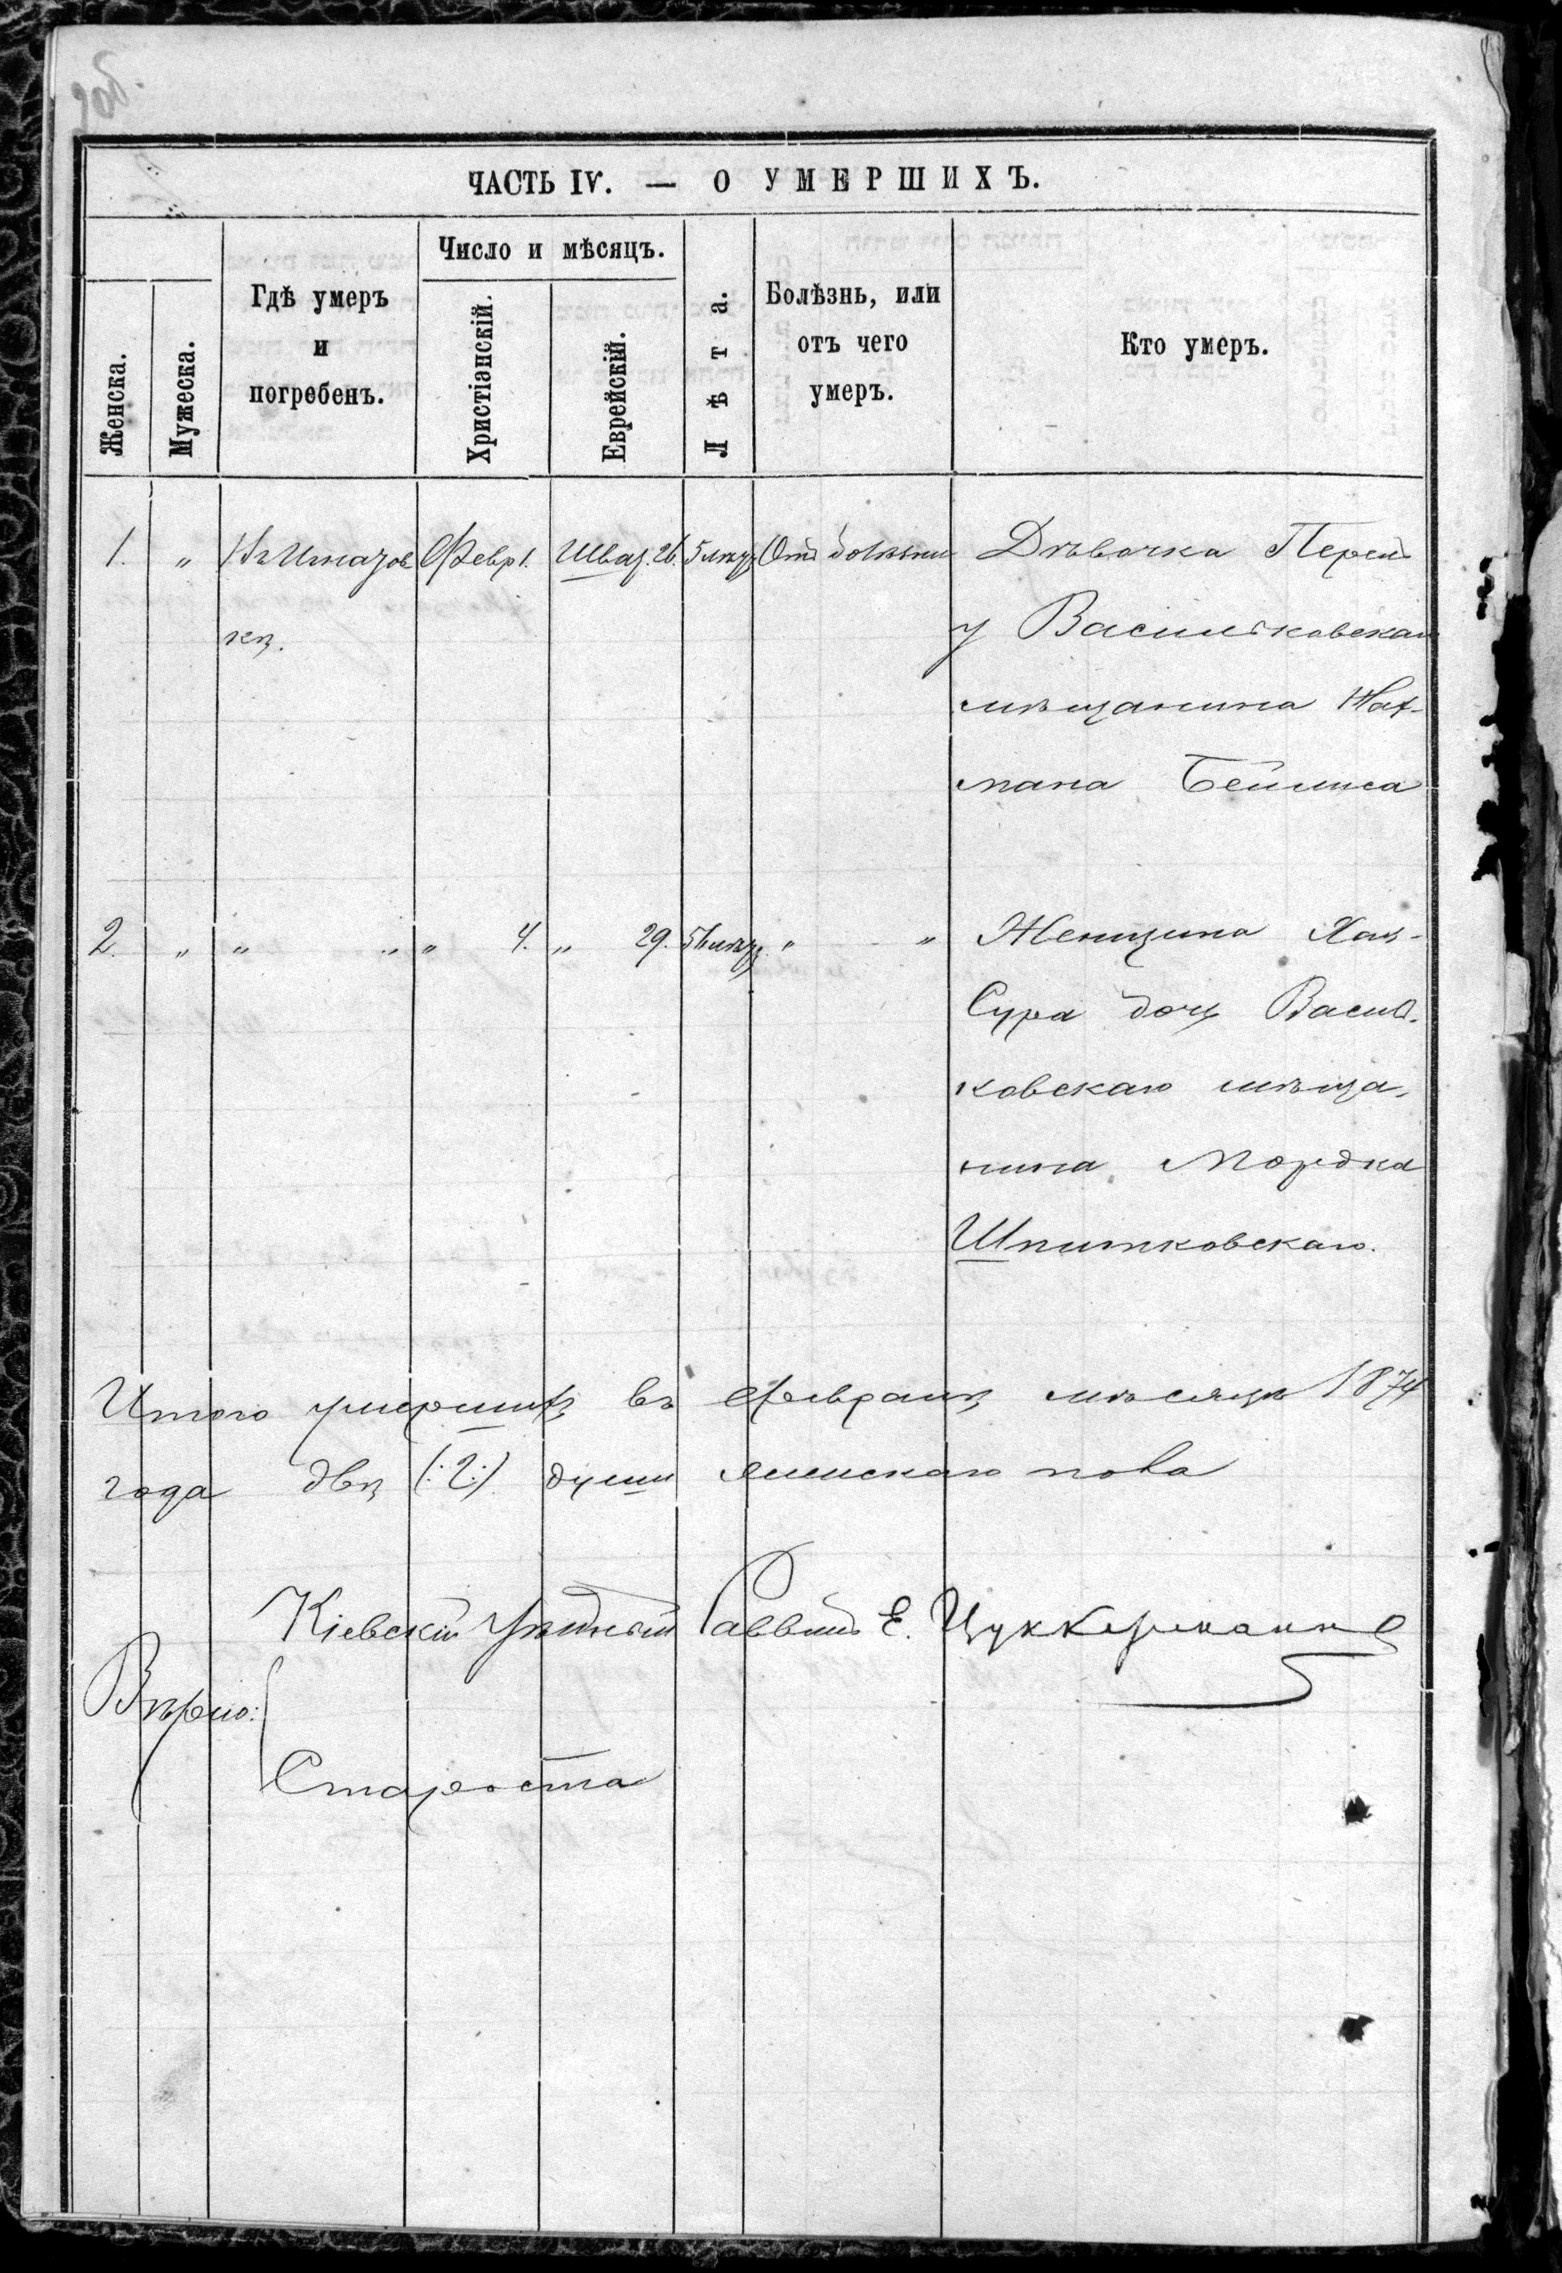 ЧАСТЬ IV. — О УМЕРШИХЪ.
Женска.
Мужеска.
Гдѣ умеръ
и
погребенъ.
Число и мѣсяцъ.
Христіанскій.
Еврейскій.
Лѣта.
Болѣзнь, или
отъ чего
умеръ.
Кто умеръ.
1. „ Февр 1. Шват. 26. 5 Отъ болѣзни Дѣвочка
у Васильковскаго
мѣщанина Нах-
мана Бейлиса
2. „ „ „ „ 4. „ 29. „ „ Женщина
Сура дочь Василь-
ковскаго мѣща-
нина Мордка
Шпитковскаго.
Итого умершихъ въ февралѣ мѣсяцѣ 1874
года двѣ (:2:) души женскаго пола
Кіевскій Уѣздный Раввинъ Е. Цуккерманъ
Вѣрно:
Староста